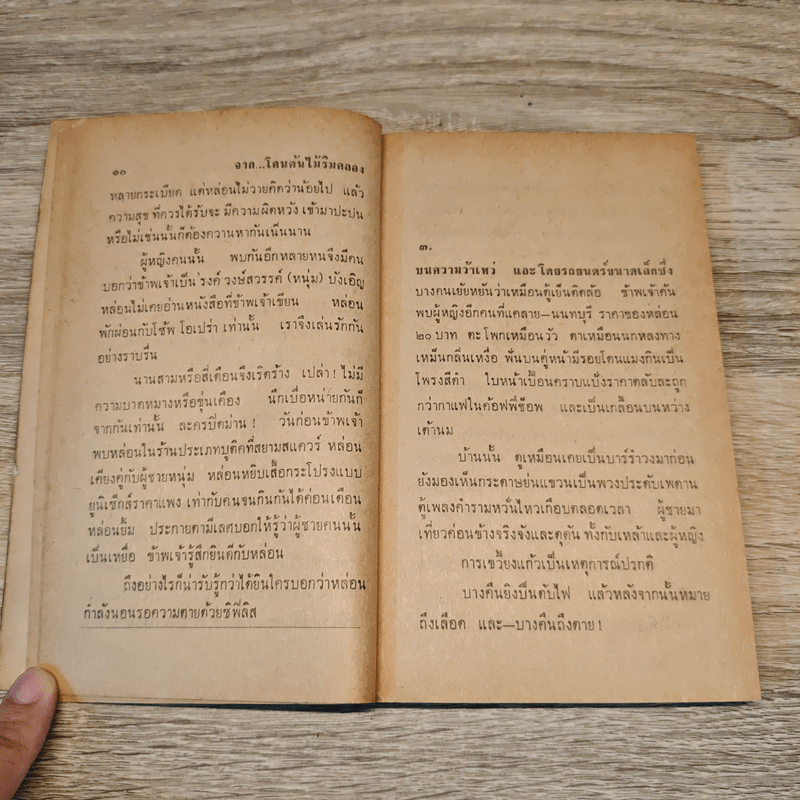 ๑๐ จาก...โคนต้นไม้ริมคลอง
หลายกระเบียด แต่หล่อนไม่วายคิดว่าน้อยไป แล้ว
ความสุข ที่ควรได้รับจะ มีความผิดหวัง เข้ามาปะปน
หรือไม่เช่นนั้นก็ต้องควานหากันเน็นนาน
ผู้หญิงคนนั้น พบกันอีกหลายหนจึงมีคน
บอกว่าข้าพเจ้าเป็น'รงค์ วงษ์สวรรค์ (หนุ่ม) บังเอิญ
หล่อนไม่เคยอ่านหนังสือที่ข้าพเจ้าเขียน หล่อน
พักผ่อนกับโซ้พ โอเปร่า เท่านั้น เราจึงเล่นรักกัน
อย่างราบรื่น
นานสามหรือสี่เดือนจึงเริดร้าง เปล่า! ไม่มี
ความบาดหมางหรือขุ่นเคือง นึกเบื่อหน่ายกันก็
จากกันเท่านั้น ละครปิดม่าน! วันก่อนข้าพเจ้า
พบหล่อนในร้านประเภทบูติคที่สยามสแควร์ หล่อน
เคียงคู่กับผู้ชายหนุ่ม หล่อนหยิบเสื้อกระโปรงแบบ
ยูนิเซ็กส์ราคาแพง เท่ากับคนจนกินกันได้ค่อนเดือน
หล่อนยิ้ม ประกายตามีเลศบอกให้รู้ว่าผู้ชายคนนั้น
เป็นเหยื่อ ข้าพเจ้ารู้สึกยินดีกับหล่อน
ถึงอย่างไรก็น่ารับรู้กว่าได้ยินใครบอกว่าหล่อน
กำลังนอนรอความตายด้วยซิฟิลิส
๓.
บนความว้าเหว่ และโดยรถยนตร์ขนาดเล็กซึ่ง
บางคนเย้ยหยันว่าเหมือนตู้เย็นติดล้อ ข้าพเจ้าค้น
พบผู้หญิงอีกคนที่แคลาย—นนทบุรี ราคาของหล่อน
๒๐ บาท ตะโพกเหมือนวัว ตาเหมือนนกหลงทาง
เหม็นกลิ่นเหงื่อ ฟันบนคู่หน้ามีรอยโดนแมงกินเป็น
โพรงสีดำ ใบหน้าเปื้อนคราบแป้งราคาตลับละถูก
กว่ากาแฟในค้อฟฟี่ช็อพ และเป็นเกลื้อนบนหว่าง
เต้านม
บ้านนั้น ดูเหมือนเคยเป็นบาร์รำวงมาก่อน
ยังมองเห็นกระดาษย่นแขวนเป็นพวงประดับเพดาน
ตู้เพลงคำรามหวั่นไหวเกือบตลอดเวลา ผู้ชายมา
เที่ยวค่อนข้างจริงจังและดุดัน ทั้งกับเหล้าและผู้หญิง
การเขวี้ยงแก้วเป็นเหตุการณ์ปรกติ
บางคืนยิงปืนดับไฟ แล้วหลังจากนั้นหมาย
ถึงเลือด และ—บางคืนถึงตาย!